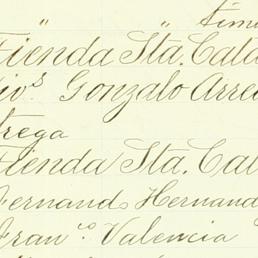 " " timo
Tienda Sta. Cata
Div.s Gonzalo Arre
trega
Tienda Sta. Cat
Fernando Hernand
Fran.co Valencia